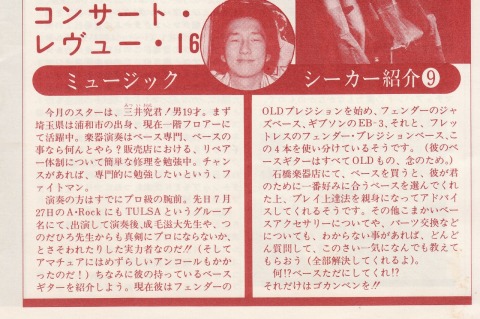 コンサート・
レヴュー・16
ミュージック
シーカー紹介❾
今月のスターは、三井究君！男19才。まず
埼玉県は浦和市の出身、現在一階フロアーに
て活躍中。楽器演奏はベース専門、ベースの
事なら何んとやら？販売店における、リペア
ー体制について簡単な修理を勉強中。チャンス
があれば、専門的に勉強したいという、ファ
イトマン。
演奏の方はすでにプロ級の腕前。先日7月
27日のA・RockにもTULSAというグループ
名にて、出演して演奏後、成毛滋大先生や、つ
のだひろ先生からも真剣にプロにならないか、
とさそわれたりした実力者なのだ!!（そして
アマチュアにはめずらしいアンコールもかか
ったのだ！）ちなみに彼の持っているベース
ギターを紹介しよう。現在彼はフェンダーの
OLDプレジションを始め、フェンダーのジャ
ズベース、ギブソンのEB-3、それと、フレッ
トレスのフェンダー・プレジションベース、こ
の4本を使い分けているそうです。（彼のベ
ースギターはすべてOLDもの、念のため。）
石橋楽器店にて、ベースを買うと、彼が君
のために一番好みに合うベースを選んでくれ
た上、プレイ上達法を親身になってアドバイ
スしてくれるそうです。その他こまかいベー
スアクセサリーについてや、パーツ交換など
についても、わからない事があれば、どんど
ん質問して、このさい一気になんでも教えて
もらおう（全部解決してくれるよ）。
何!?ベースただにしてくれ!?
それだけはゴカンベンを!!